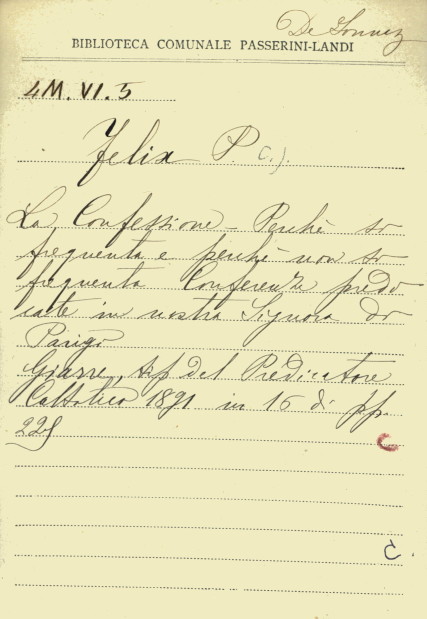 De
BIBLIOTECA COMUNALE PASSERINI-LANDI
4M.VI.5
Felix P. C.J.
La Confessione - Perchè so
frequenta e perchè non so
frequenta Conferenze predi
cate in nostra Signora do
Parigo
Giarre, tip del Predicatore
Cattolico 1891 in 16 di pp.
225
C
C.